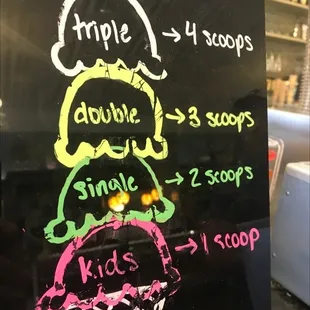 triple → 4 scoops
double → 3 scoops
single → 2 scoops
kids → 1 scoop